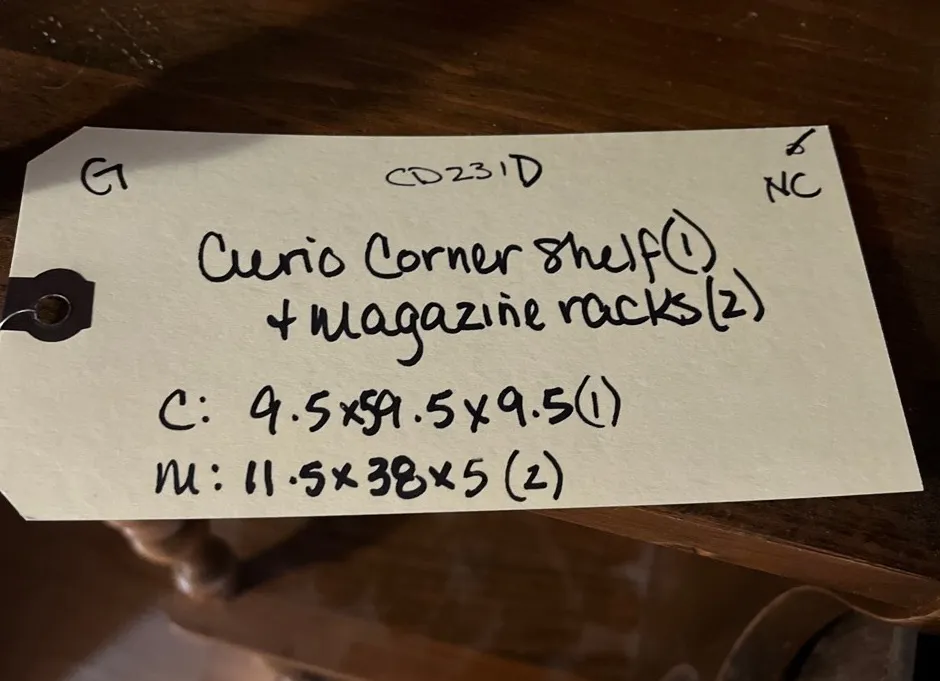 G CD231D
NC
Curio Corner Shelf(1)
+ Magazine racks(2)
C: 9.5x59.5x9.5(1)
M: 11.5x38x5(2)